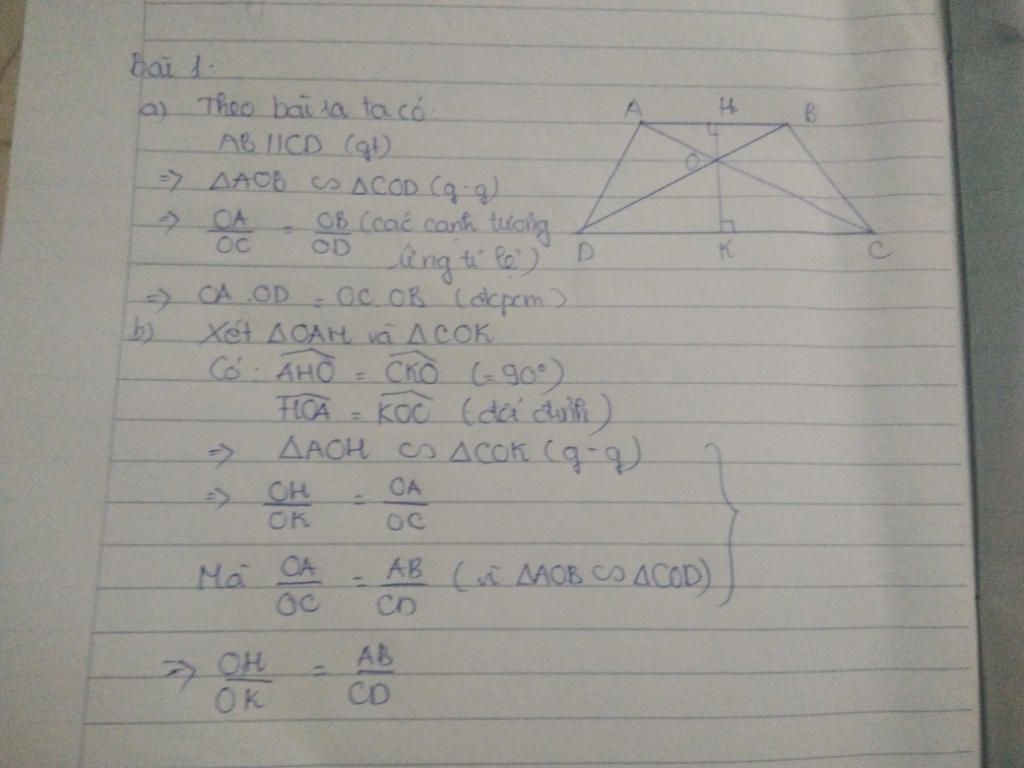 Bài 1.
a) Theo bài ra ta có.
AB // CD (gt)
=> ΔAOB ∽ ΔCOD (g-g)
=> OA/OC = OB/OD (các cạnh tương
ứng tỉ lệ)
=> OA.OD = OC.OB (đkpcm)
b) Xét ΔOAH và ΔCOK
Có. \widehat{AHO} = \widehat{CKO} (=90°)
\widehat{HOA} = \widehat{KOC} (đối đỉnh)
=> ΔAOH ∽ ΔCOK (g-g)
=> OH/OK = OA/OC
Mà OA/OC = AB/CD (vì ΔAOB ∽ ΔCOD)
=> OH/OK = AB/CD
A H B
O
D K C